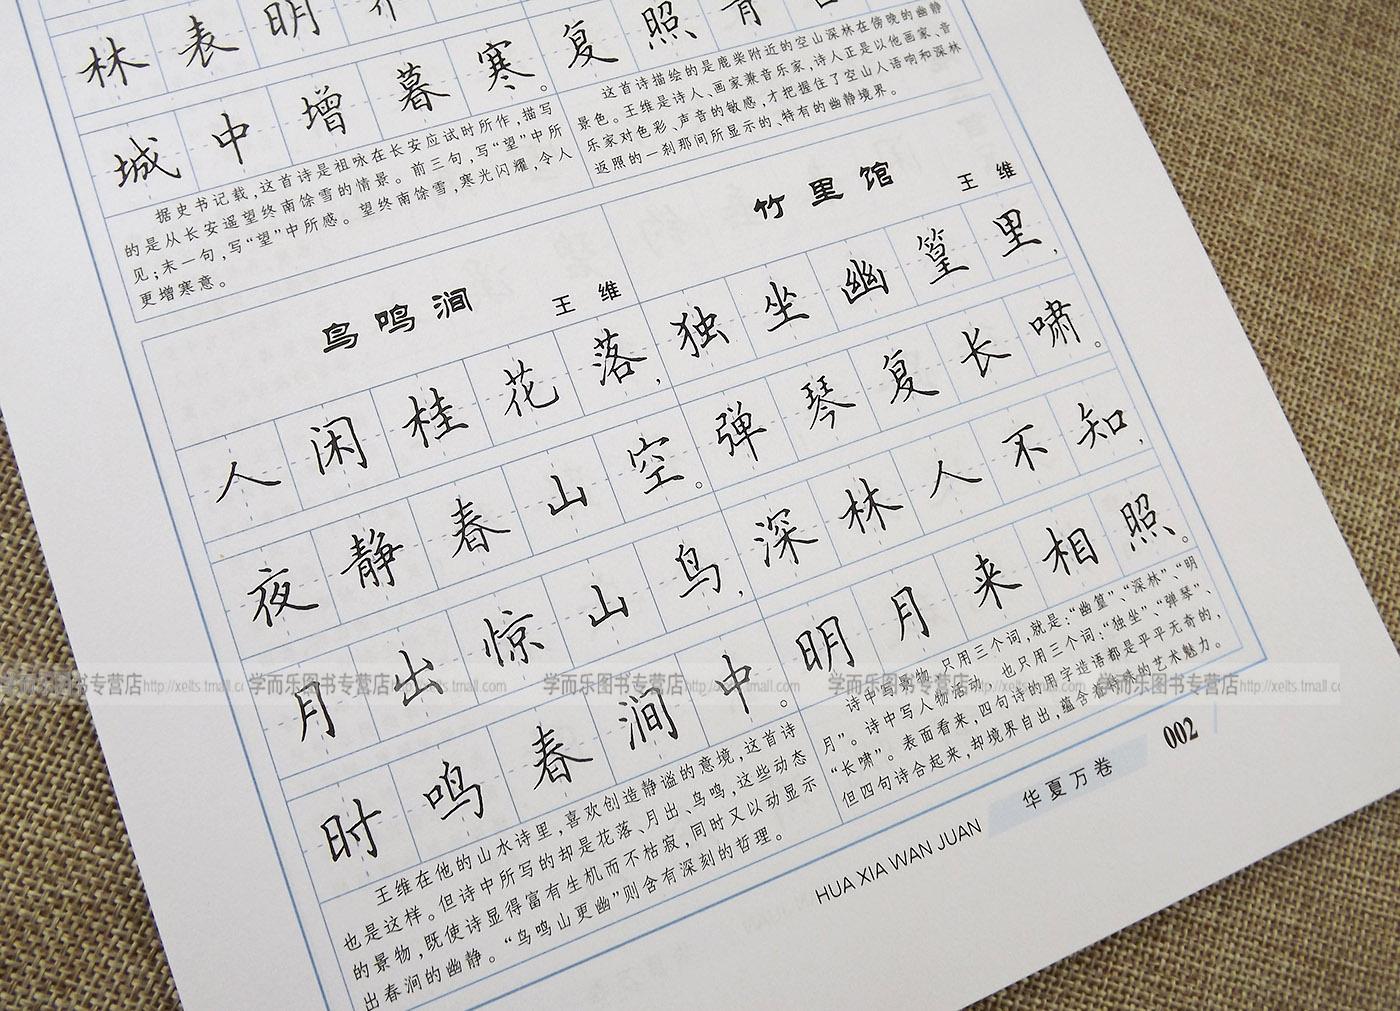 林表明
城中增暮寒。
据史书记载,这首诗是祖咏在长安应试时所作,描写
的是从长安遥望终南馀雪的情景。前三句,写“望”中所
见;末一句,写“望”中所感。望终南馀雪,寒光闪耀,令人
更增寒意。
复照青
这首诗描绘的是鹿柴附近的空山深林在傍晚的幽静
景色。王维是诗人、画家兼音乐家,诗人正是以他画家、音
乐家对色彩、声音的敏感,才把握住了空山人语响和深林
返照的一刹那间所显示的、特有的幽静境界。
鸟鸣涧
王维
人闲桂花落,
夜静春山空。
月出惊山鸟,
时鸣春涧中。
王维在他的山水诗里,喜欢创造静谧的意境,这首诗
也是这样。但诗中所写的却是花落、月出、鸟鸣,这些动态
的景物,既使诗显得富有生机而不枯寂,同时又以动显示
出春涧的幽静。“鸟鸣山更幽”则含有深刻的哲理。
竹里馆
王维
独坐幽篁里,
弹琴复长啸。
深林人不知,
明月来相照。
诗中写景物,只用三个词,就是:“幽篁”、“深林”、“明
月”。诗中写人物活动,也只用三个词:“独坐”、“弹琴”、
“长啸”。表面看来,四句诗的用字造语都是平平无奇的,
但四句诗合起来,却境界自出,蕴含着特殊的艺术魅力。
华夏万卷
002
HUA XIA WAN JUAN
学而乐图书专营店http://xelts.tmall.com
学而乐图书专营店http://xelts.tmall.com
学而乐图书专营店http://xelts.tmall.com
学而乐图书专营店http://xelts.tmall.com